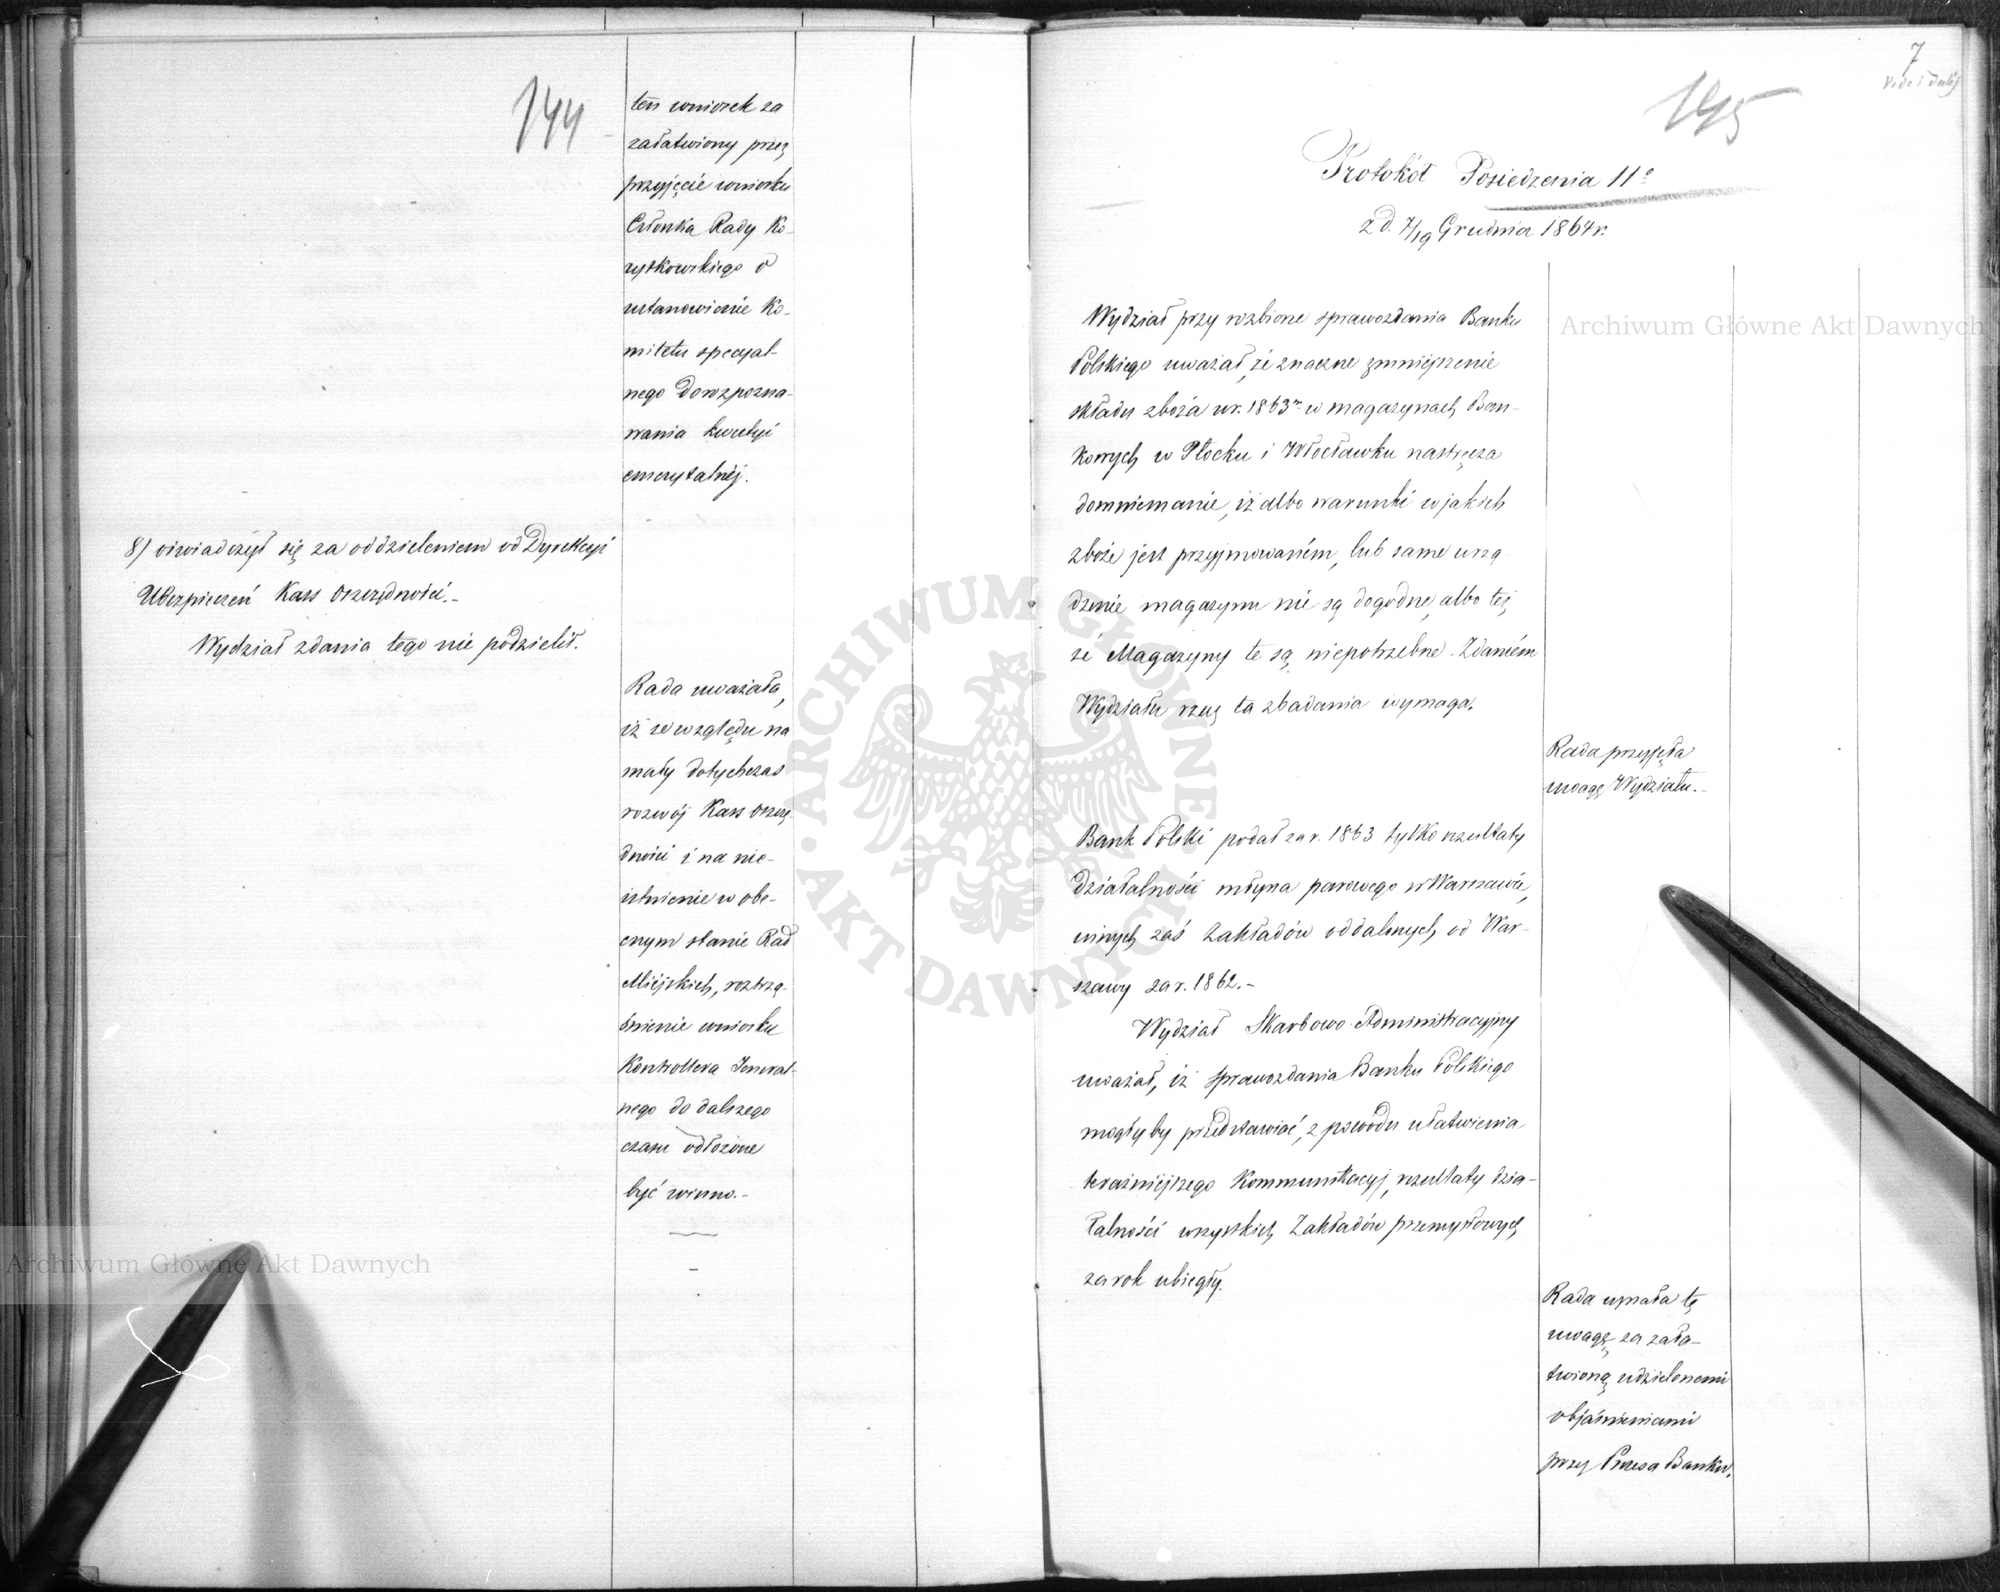 144
ten wniosek za
załatwiony przez
przyjęcie wniosku
Członka Rady Ko-
rytkowskiego o
ustanowienie Ko-
mitetu specyal-
nego do rozpozna-
wania kwestyi
emerytalnéj.
8) oświadczył się za oddzieleniem od Dyrekcyi
Ubezpieczeń Kass Oszczędności.-
Wydział zdania tego nie podzielił.
Rada uważała,
iż ze względu na
mały dotychczas
rozwój Kass Oszczę-
dności i na nie-
istnienie w obe-
cnym stanie Rad
Miejskich, roztrzą-
śnienie wniosku
Kontrollera Jeneral-
nego do dalszego
czasu odłożone
być winno.-
7
Vide i dalej
145
Protokół Posiedzenia 11º
z d. 7/19 Grudnia 1864 r.
Wydział przy rozbiorze sprawozdania Banku
Polskiego uważał, że znaczne zmniejszenie
składu zboża w r. 1863m w magazynach Ban-
kowych w Płocku i Włocławku nastręcza
domniemanie, iż albo warunki w jakich
zboże jest przyjmowaném, lub same urzą
dzenie magazynu nie są dogodne, albo też,
że Magazyny te są niepotrzebne. Zdaniém
Wydziału rzecz ta zbadania wymaga.
Rada przyjęła
uwagę Wydziału.-
Bank Polski podał za r. 1863 tylko rezultaty
działalności młyna parowego w Warszawie,
innych zaś Zakładów oddalonych od War-
szawy za r. 1862.-
Wydział Skarbowo-Administracyjny
uważał, iż sprawozdania Banku Polskiego
mogłyby przedstawiać, z powodu ułatwienia
teraźniejszego Kommunikacyj, rezultaty dzia-
łalności wszystkich Zakładów przemysłowych
za rok ubiegły.
Rada uznała tę
uwagę za zała-
twioną udzielonemi
objaśnieniami
przez Prezesa Banku.
Archiwum Główne Akt Dawnych
Archiwum Główne Akt Dawnych
ARCHIWUM GŁÓWNE AKT DAWNYCH